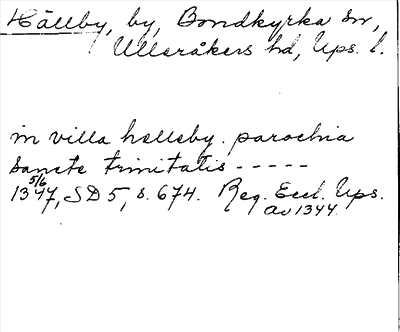 Hällby, by, Bondkyrka sn,
Ulleråkers hd, Ups. l.
in villa hælleby. parochia
sancte trinitatis -----
5/6
1347, SD 5, s. 674. Reg. Eccl. Ups.
av 1344.